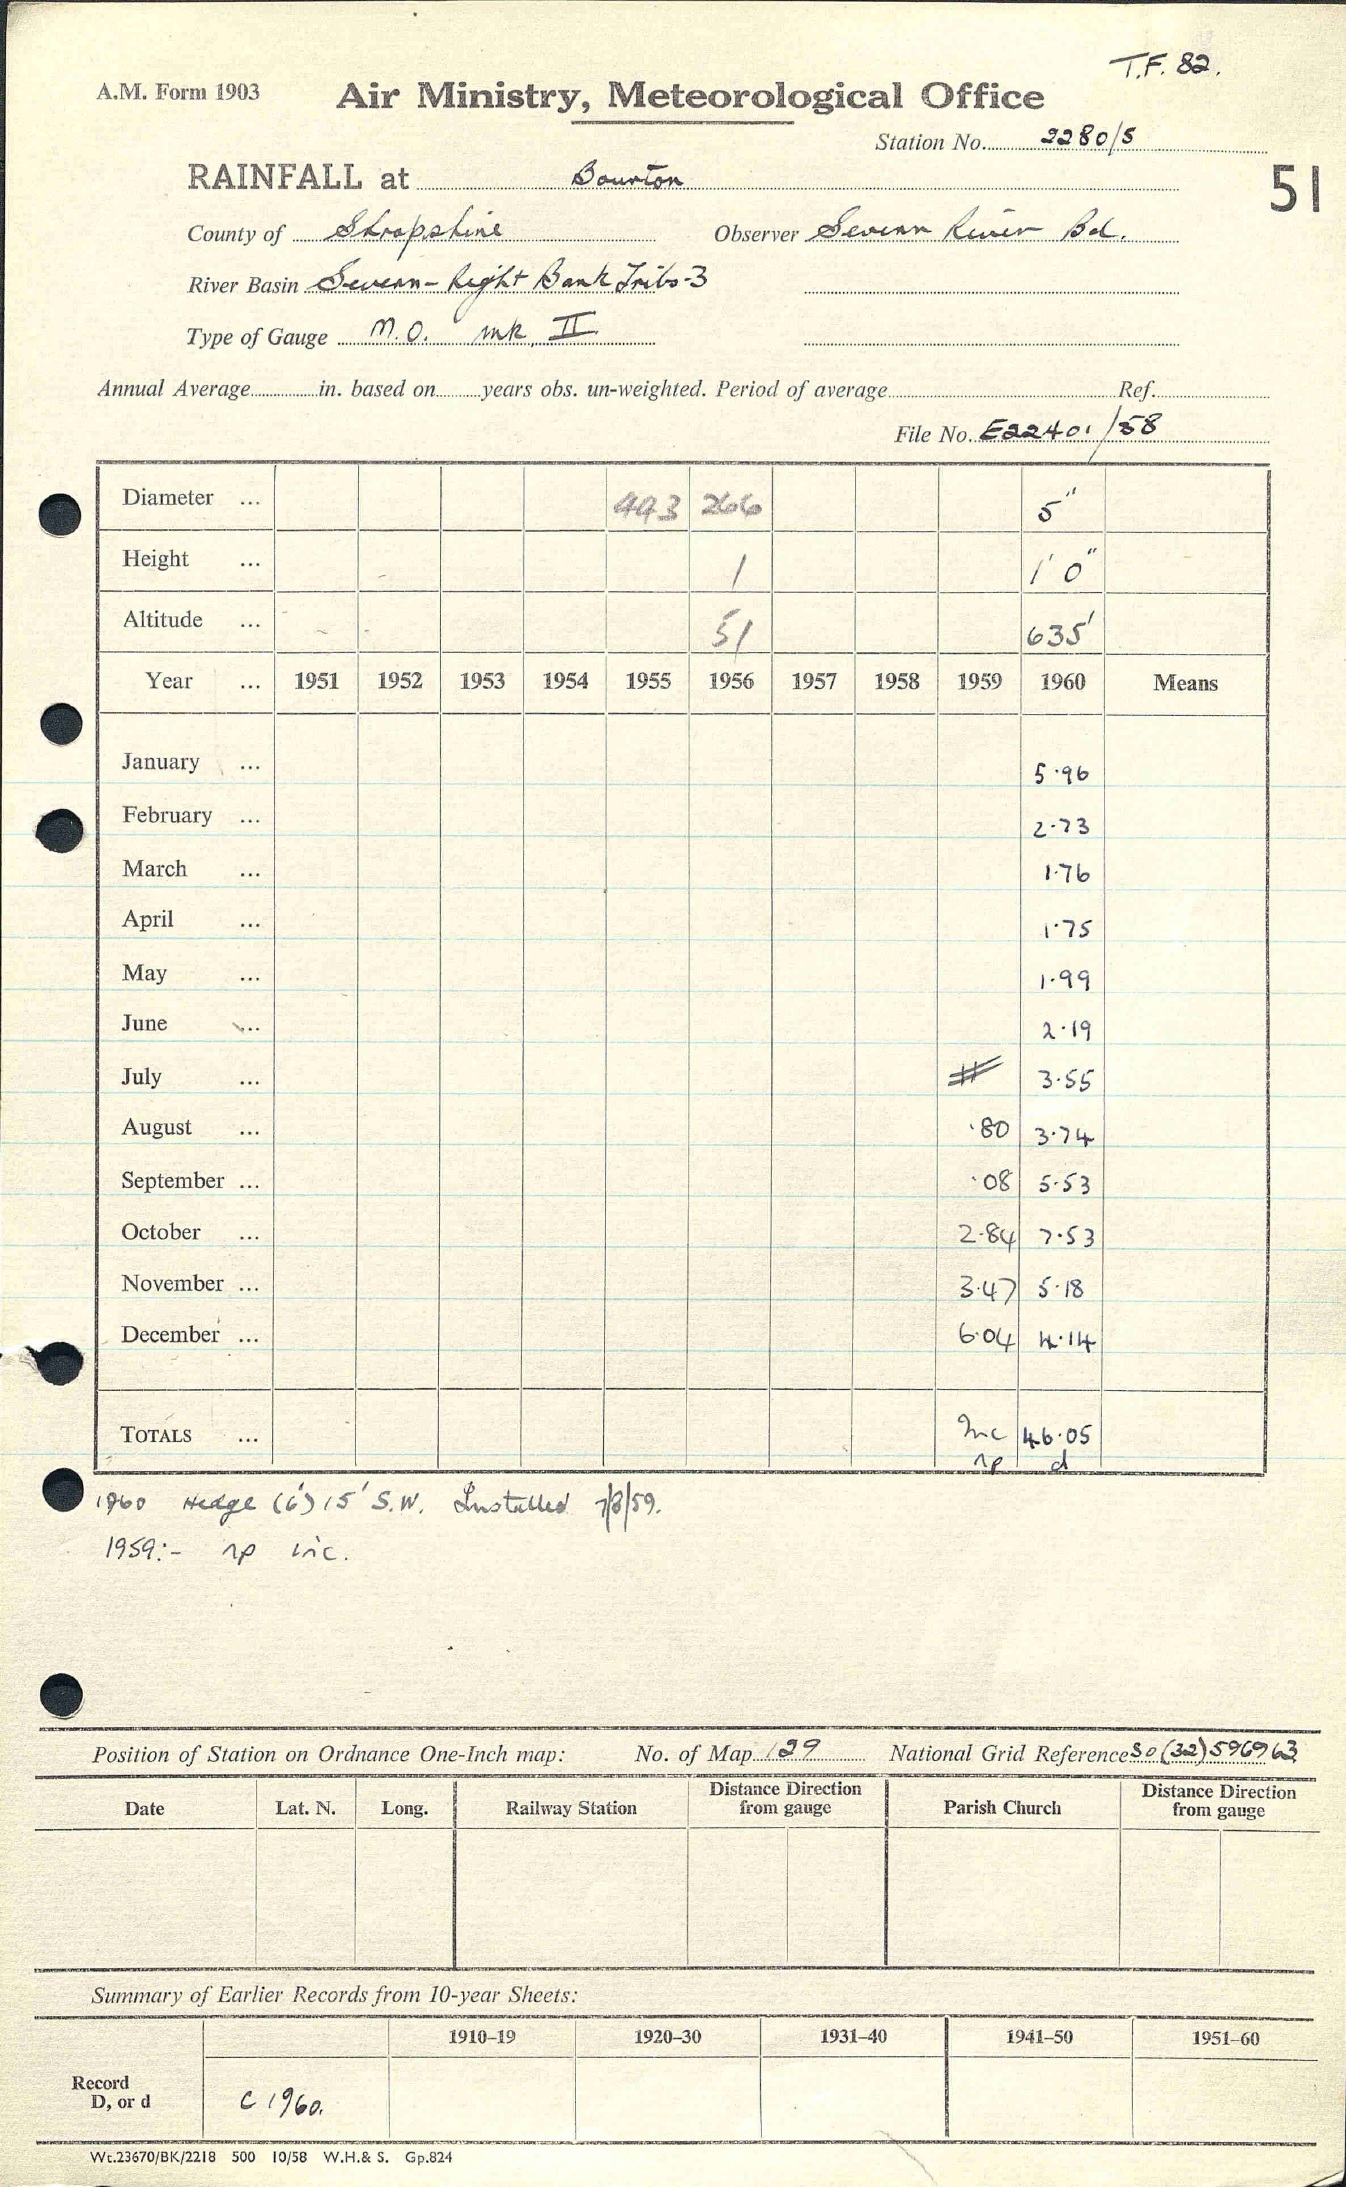 T.F. 82.
A.M. Form 1903 Air Ministry, Meteorological Office
Station No. 2280/5
51
RAINFALL at Bourton
County of Shropshire Observer Severn River Bd.
River Basin Severn - Right Bank Tribs-3
Type of Gauge M.O. mk II
Annual Average in. based on years obs. un-weighted. Period of average Ref.
File No. E22401/58
Diameter ... 493 266 5"
Height ... 1 1' 0"
Altitude ... 51 635'
Year ... 1951 1952 1953 1954 1955 1956 1957 1958 1959 1960 Means
January ... 5.96
February ... 2.73
March ... 1.76
April ... 1.75
May ... 1.99
June ... 2.19
July ... 3.55
August ... .80 3.74
September ... .08 5.53
October ... 2.84 7.53
November ... 3.47 5.18
December ... 6.04 4.14
TOTALS ... Inc 46.05
np d
1960 Hedge (6') 15' S.W. Installed 7/8/59.
1959:- np inc.
Position of Station on Ordnance One-Inch map: No. of Map 129 National Grid Reference SO (32) 596963
Date Lat. N. Long. Railway Station Distance Direction from gauge Parish Church Distance Direction from gauge
Summary of Earlier Records from 10-year Sheets:
1910–19 1920–30 1931–40 1941–50 1951–60
Record
D, or d C 1960.
Wt.23670/BK/2218 500 10/58 W.H.& S. Gp.824